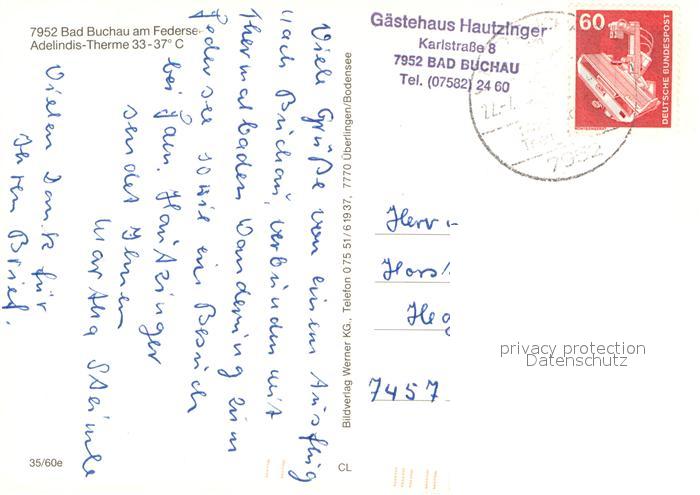 7952 Bad Buchau am Federse
Adelindis-Therme 33-37° C
Viele Grüße von einem Ausflug
nach Buchau, verbunden mit
Thermalbaden Wanderung zum
Federsee sowie ein Besuch
bei Fam. Hautzinger
sendet Ihnen
Martha Steimle
Vielen Dank für
Ihren Brief.
35/60e
CL
Bildverlag Werner KG., Telefon 075 51/6 19 37, 7770 Überlingen/Bodensee
Gästehaus Hautzinger
Karlstraße 8
7952 BAD BUCHAU
Tel. (07582) 24 60
60
DEUTSCHE BUNDESPOST
7952
Herr
Hors
7457
privacy protection
Datenschutz